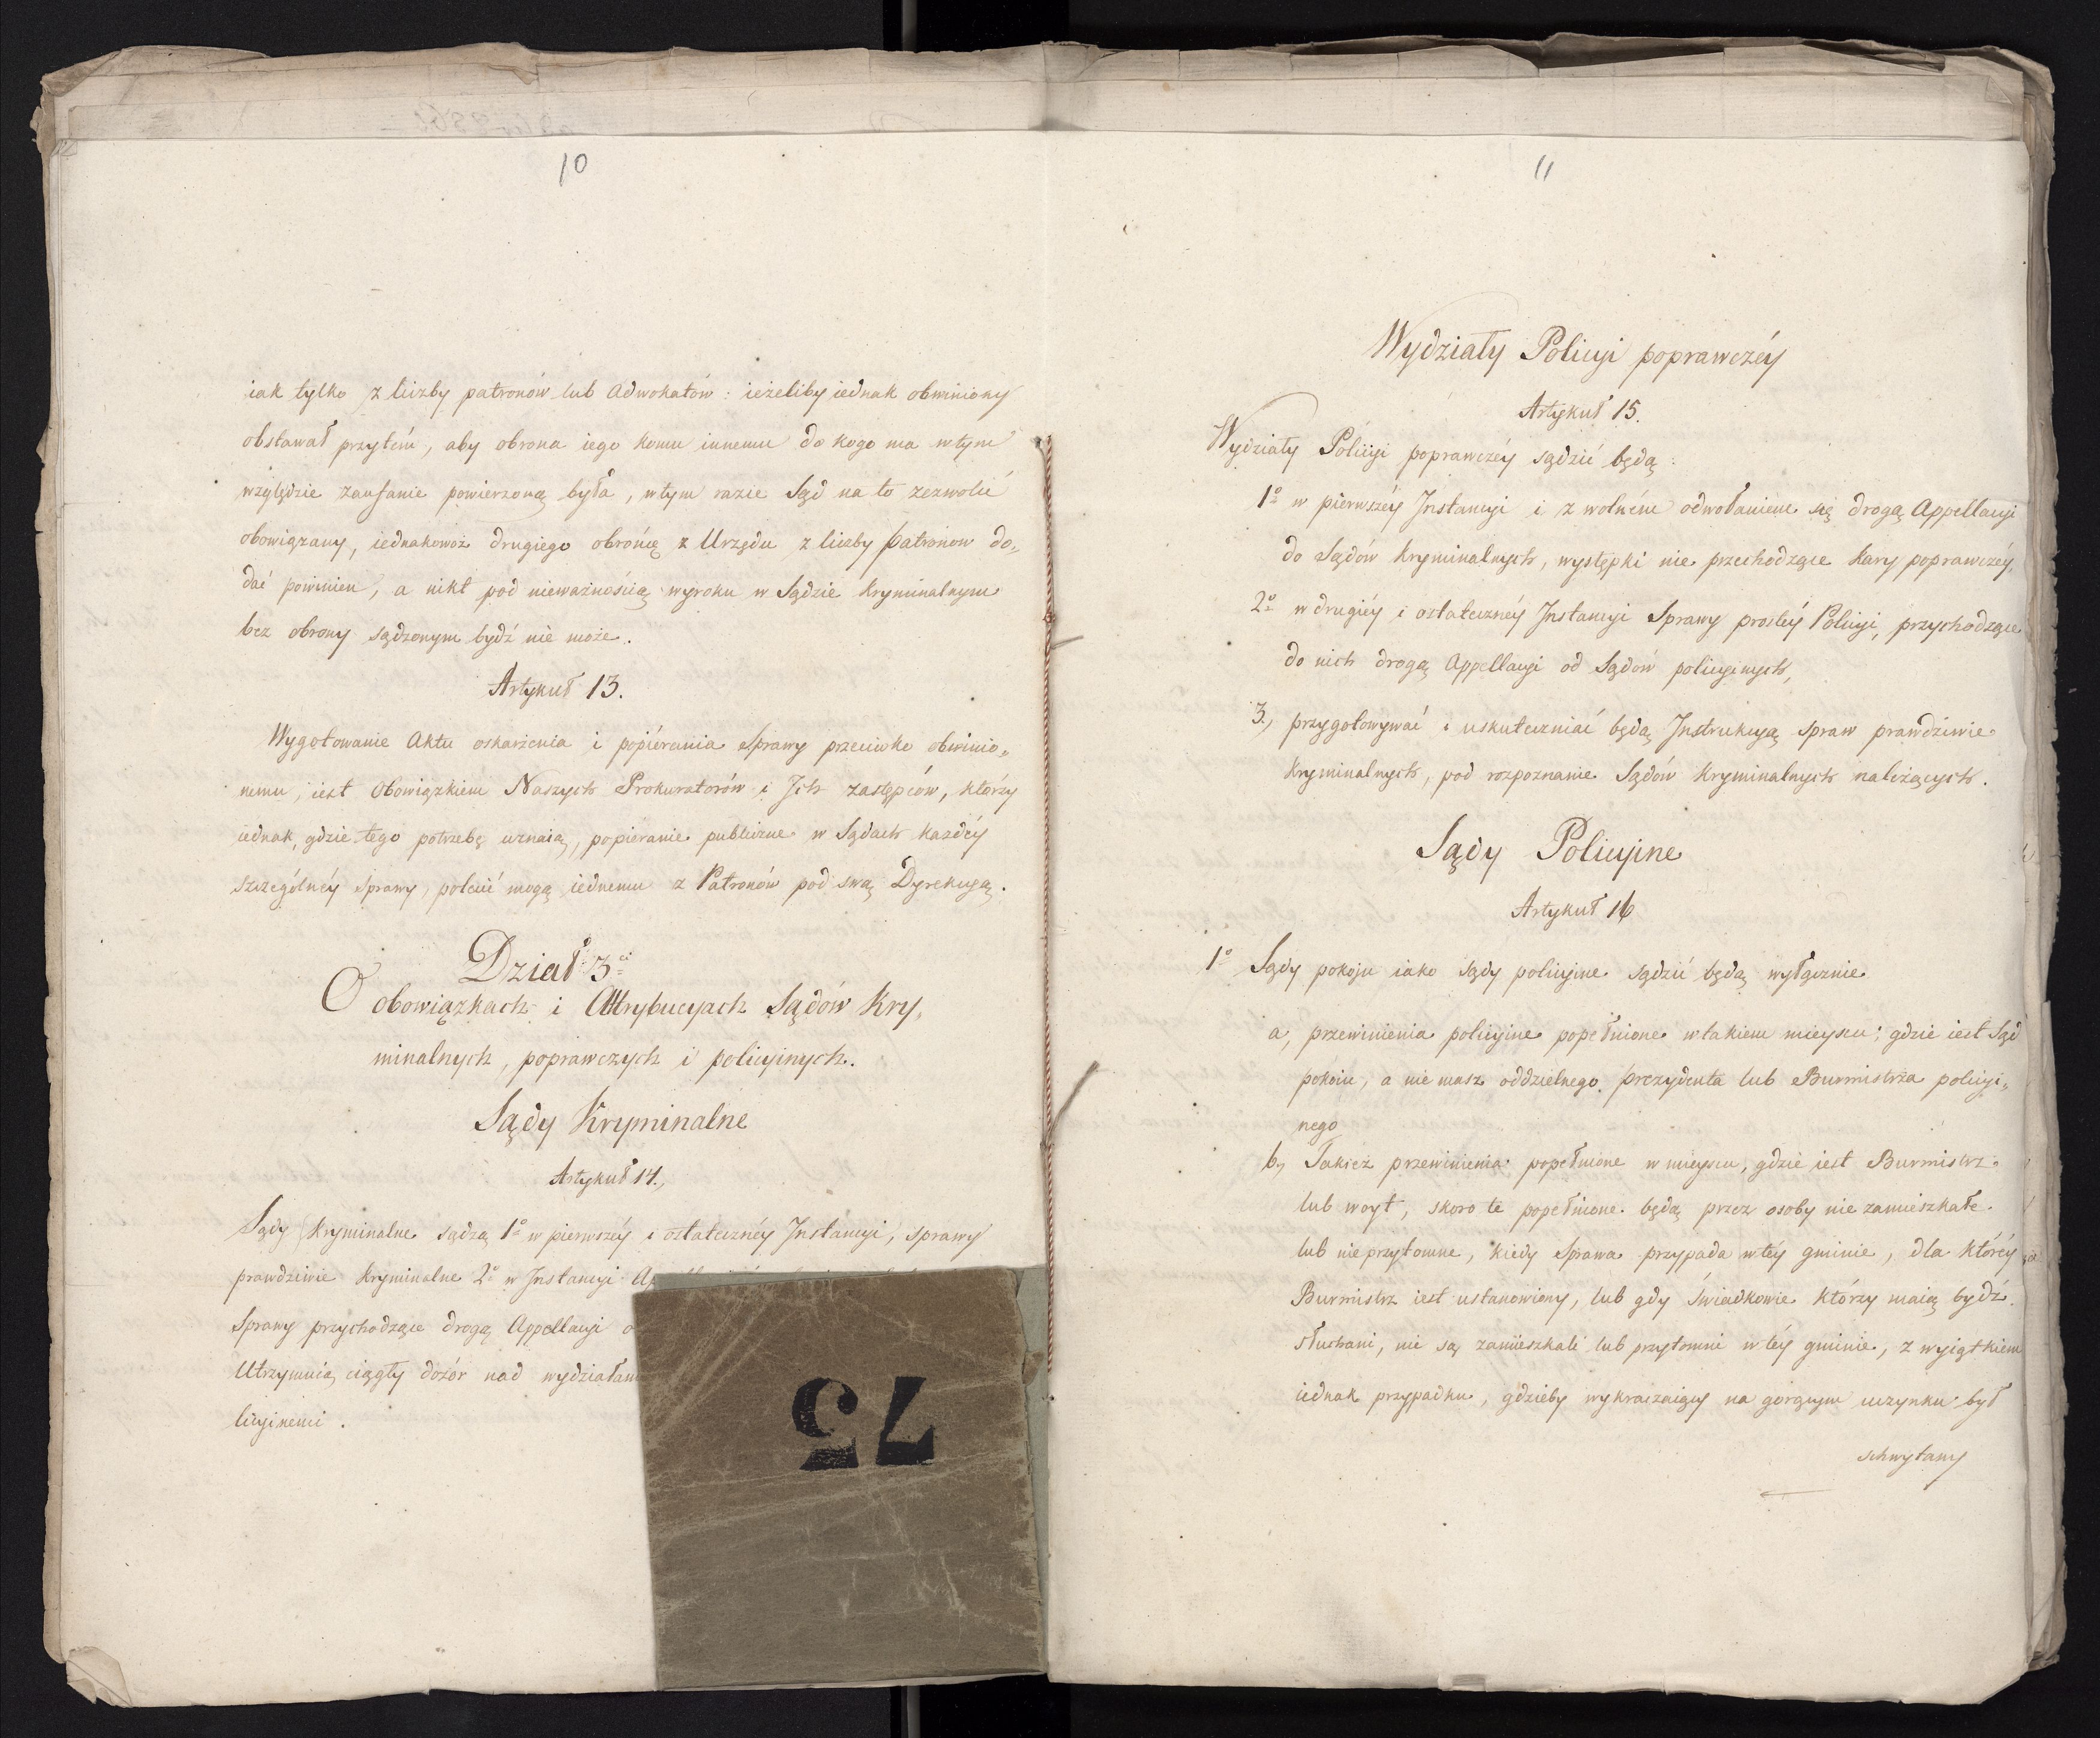 10
iak tylko z liczby patronów lub Adwokatów: ieżeliby iednak obwiniony
obstawał przytém, aby obrona iego komu innemu do kogo ma w tym
względzie zaufanie powierzoną była, w tym razie Sąd na to zezwolić
obowiązany, iednakowoż drugiego obrońcę z Urzędu z liczby patronow do„
dać powinien, a nikt pod nieważnością wyroku w Sądzie Kryminalnym
bez obrony sądzonym bydź nie może.
Artykuł 13.
Wygotowanie Aktu oskarżenia i popiérania Sprawy przeciwko obwinio„
nemu, iest Obowiązkiem Naszych Prokuratorów i Ich zastępców, którzy
iednak, gdzie tego potrzebę uznaią, popieranie publiczne w Sądach każdéy
szczególnéy sprawy, polecić mogą iednemu z Patronów pod swą Dyrekcyą.
Dział 3ci
O obowiązkach i Attrybucyach Sądów Kry„
minalnych, poprawczych i policyinych.
Sądy Kryminalne
Artykuł 14.,
Sądy Kryminalne sądzą 1o w pierwszéy i ostatecznéy Instancyi, sprawy
prawdziwie Kryminalne 2o w Instancyi
Sprawy przychodzące drogą Appellacyi
Utrzymuią ciągły dozór nad
licyinemi.
75
11
Wydziały Policyi poprawczéy
Artykuł 15.
Wydziały Policyi poprawczéy sądzić będą:
1o w pierwszéy Instancyi i z wolném odwołaniem się drogą Appellacyi
do Sądów Kryminalnych, występki nie przechodzące Kary poprawczéy,
2o w drugiéy i ostatecznéy Instancyi Sprawy prostéy Policyi, przychodzące
do nich drogą Appellacyi od Sądów policyinych,
3., przygotowywać i uskuteczniać będą Instrukcyą spraw prawdziwie
Kryminalnych, pod rozpoznanie Sądów Kryminalnych należących.
Sądy Policyine
Artykuł 16
1o Sądy pokoju iako sądy policyine sądzić będą wyłącznie
a, przewinienia policyine popełnione w takiem mieyscu, gdzie iest Sąd
pokoiu, a nie masz oddzielnego prezydenta lub Burmistrza policyi„
nego
b, Takież przewinienia popełnione w mieyscu, gdzie iest Burmistrz
lub woyt, skoro te popełnione będą przez osoby nie zamieszkałe
lub nieprzytomne, kiedy Sprawa przypada w téy gminie, dla któréy
Burmistrz iest ustanowiony, lub gdy świadkowie którzy maią bydź
słuchani, nie są zamieszkali lub przytomni w téy gminie, z wyiątkiem
iednak przypadku, gdzieby wykraczaiący na gorącym uczynku był
schwytany